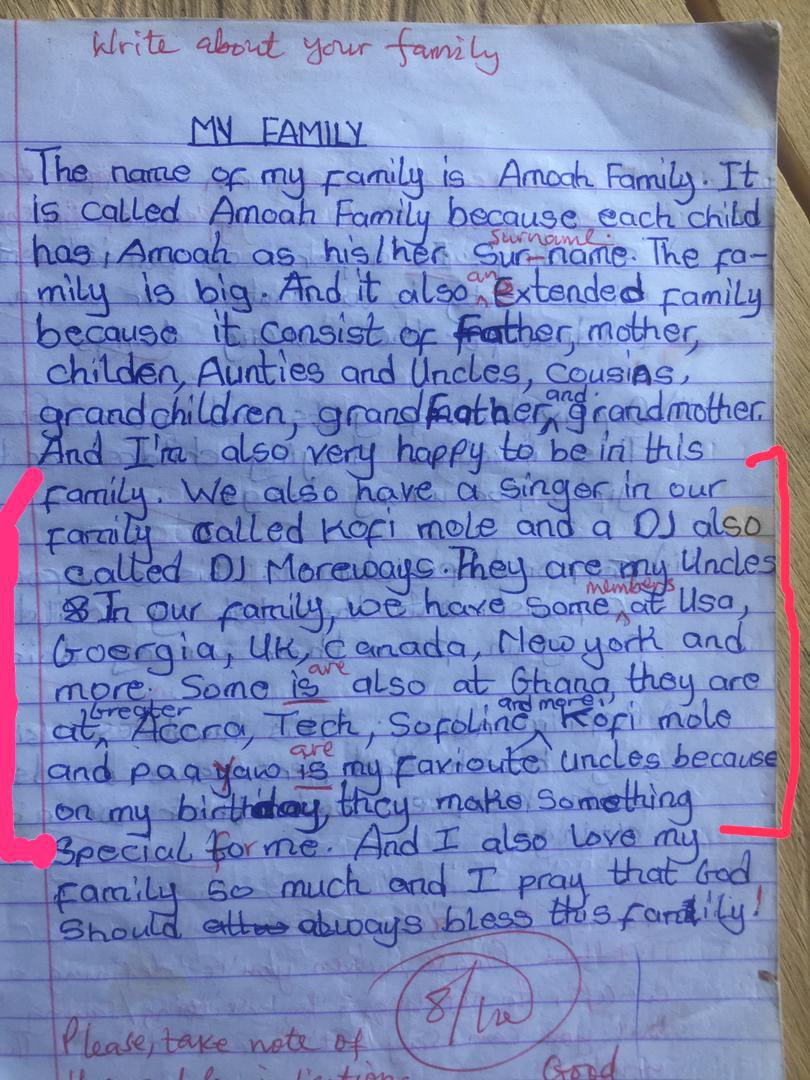 Write about your family
MY FAMILY
The name of my family is Amoah Family. It
is called Amoah Family because each child
surname.
has, Amoah as his/her Sur-name. The fa-
an
mily is big. And it also Extended family
because it consist of father, mother,
childen, Aunties and Uncles, Cousins,
and.
grandchildren, grandfather, grandmother.
And I'm also very happy to be in this
family. We also have a singer in our
family called Kofi mole and a DJ also
called DJ Moreways. They are my Uncles
members
In our family, we have some at Usa,
Goergia, UK, Canada, New york and
are
more. Some is also at Ghana, they are
Greater and more.
at Accra, Tech, Sofoline, Kofi mole
are
and paa yaw is my favioute uncles because
on my birthday, they make Something
Special for me. And I also love my
family so much and I pray that God
should always bless this family!
8/10
Please, take note of
Good